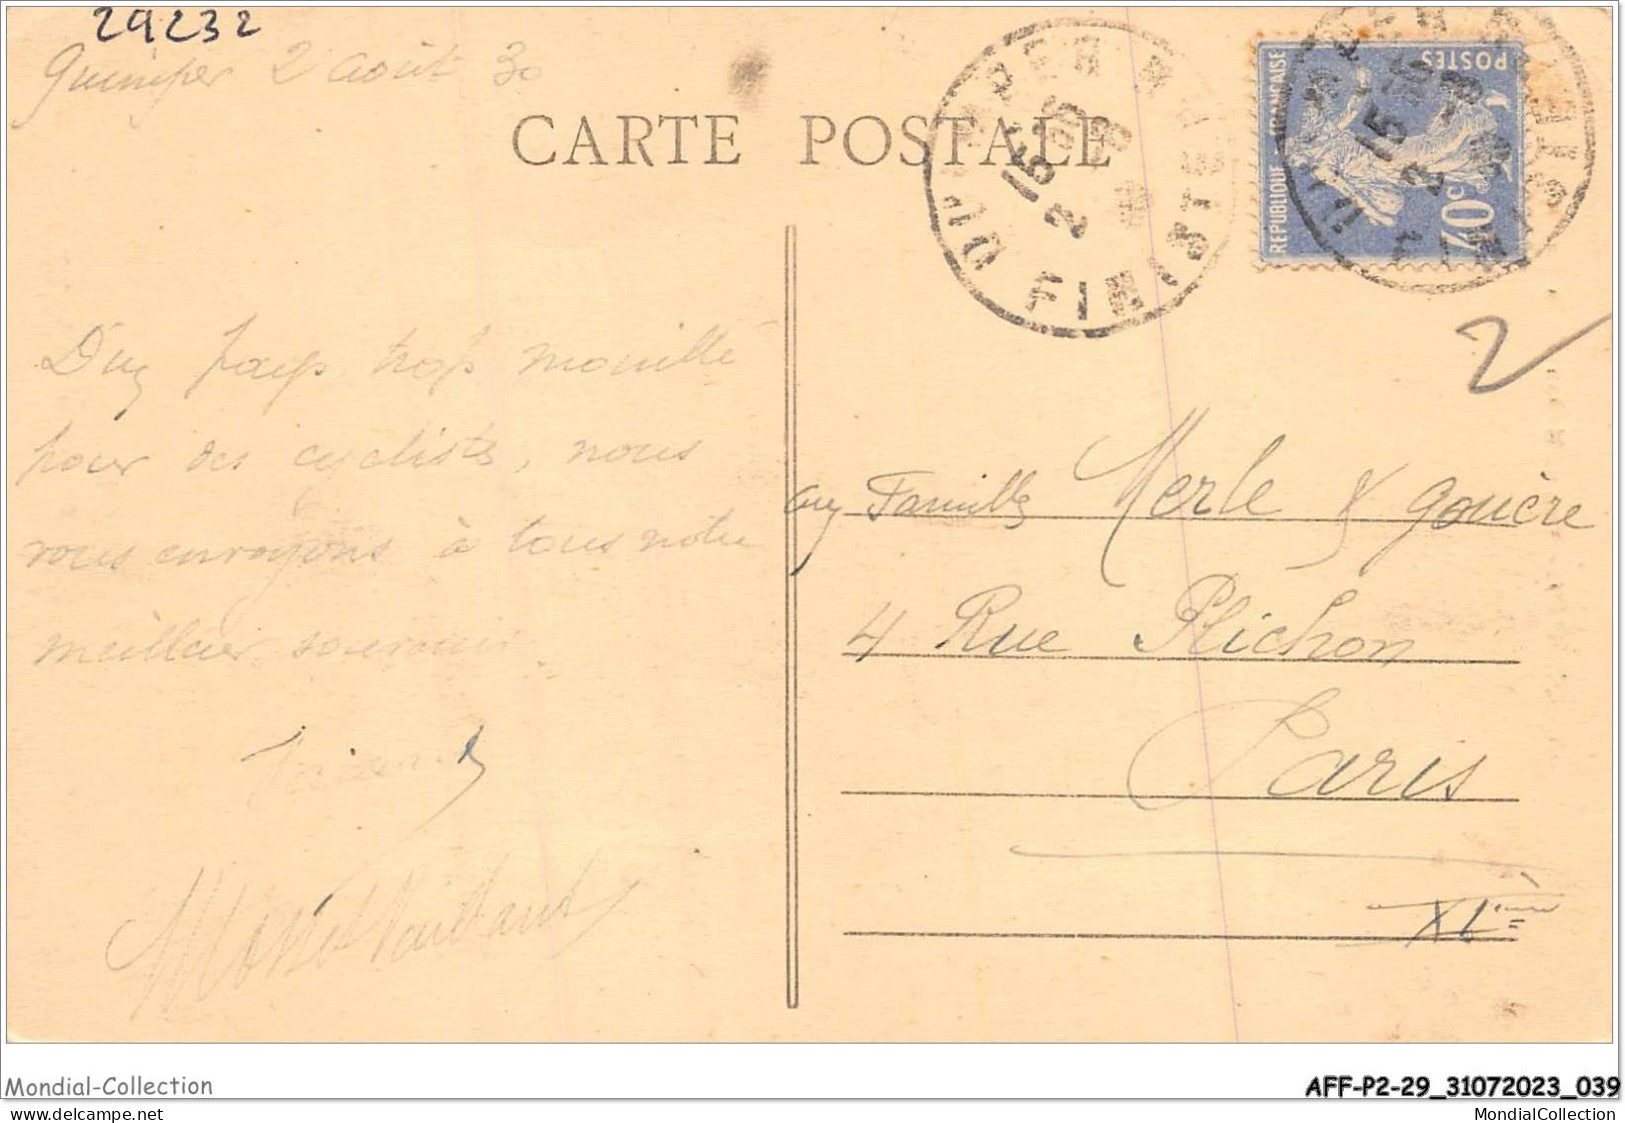 29232
Quimper 2 août 30
CARTE POSTALE
QUIMPER
15
2 -8
FINISTERE
REPUBLIQUE FRANCAISE
POSTES
40c
2
D'un pays trop mouillé
pour des cyclistes, nous
vous envoyons à tous notre
meilleur souvenir.
Vaillant
aux Familles Merle & Gouère
4 Rue Plichon
Paris
XIème
Mondial-Collection
AFF-P2-29_31072023_039
www.delcampe.net
MondialCollection